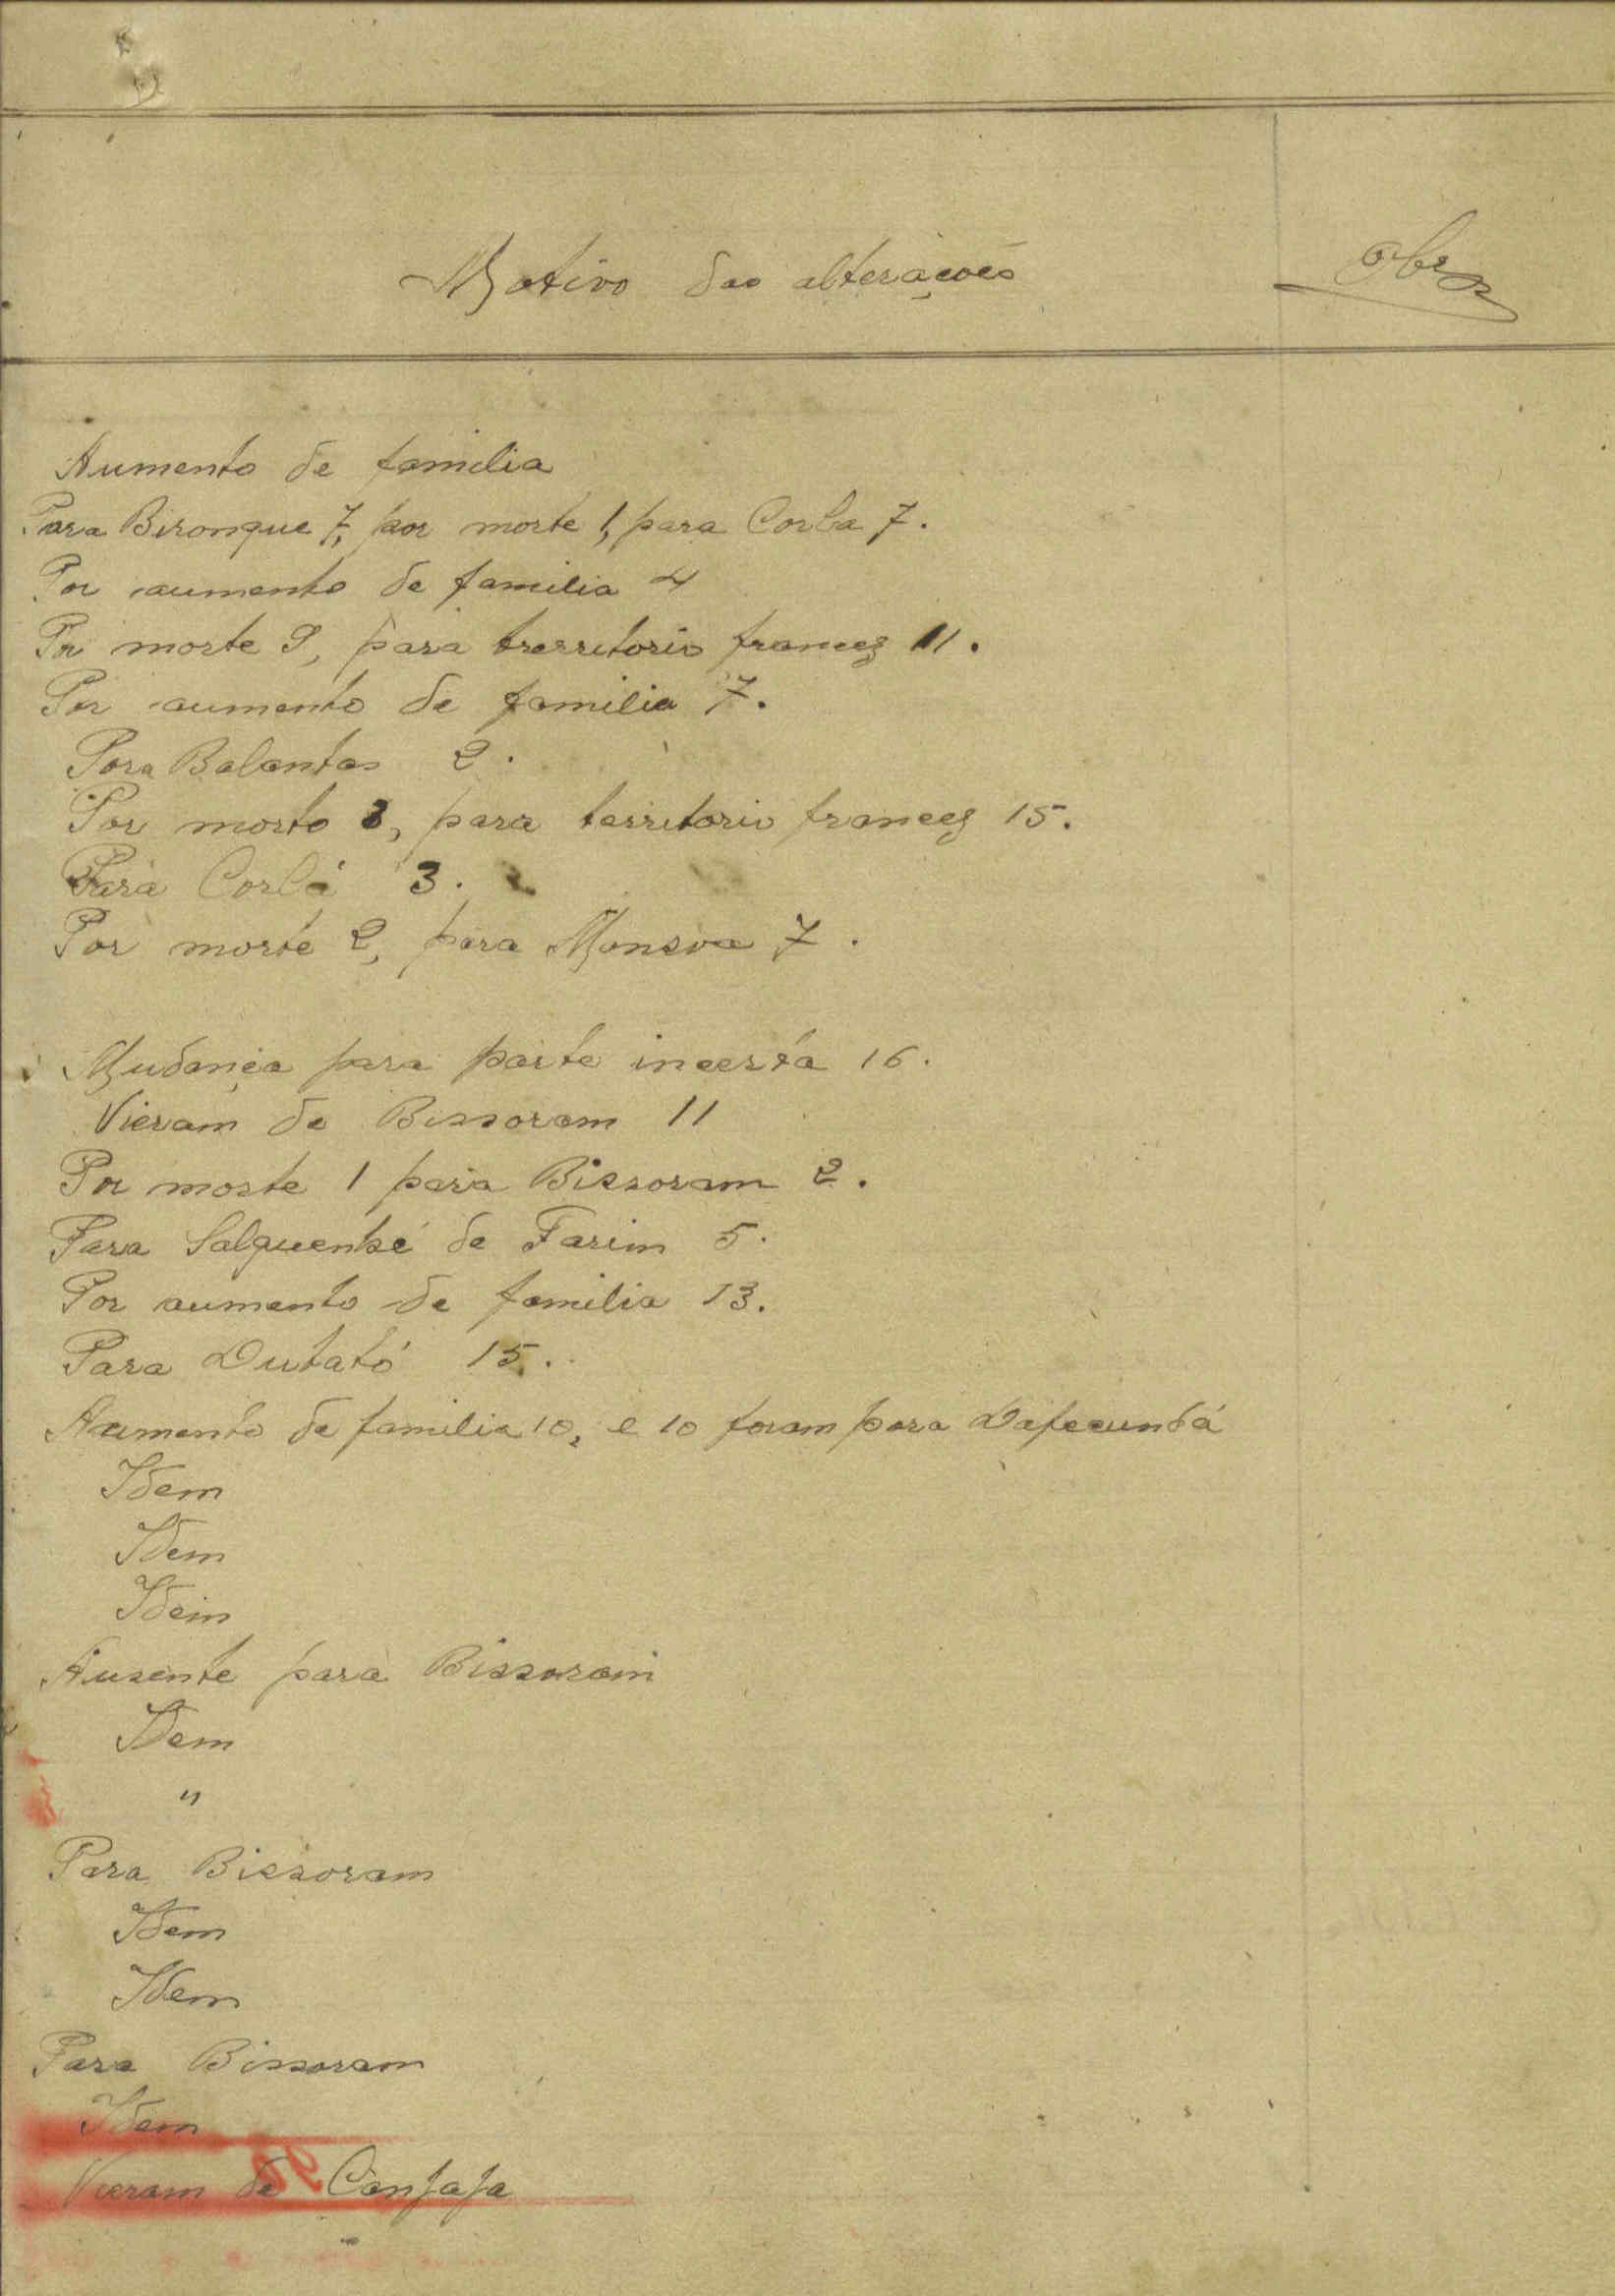 Motivo das alterações
Obs
Aumento de familia
Para Bironque 7, por morte 1, para Corla 7.
Por aumento de familia 4
Por morte 9, para trerritorio francez 11.
Por aumento de familia 7.
Para Balantas 2.
Por morte 3, para territorio francez 15.
Para Corlá 3.
Por morte 2, para Mansoa 7.
Mudança para parte incerta 16.
Vieram de Bissoram 11
Por morte 1 para Bissoram 2.
Para Salquenhé de Farim 5.
Por aumento de familia 13.
Para Dutató 15.
Aumento de familia 10, e 10 foram para Dafecundá
Idem
Idem
Idem
Ausente para Bissoram
Idem
"
Para Bissoram
Idem
Idem
Para Bissoram
Idem
Vieram de Canjaja